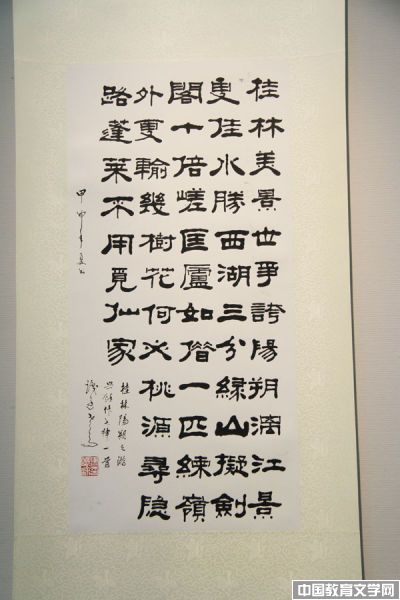 桂林美景世爭誇陽朔漓江景
更佳水勝西湖三分緑山擬劍
閣十倍嵯匡廬如偕一匹練嶺
外更輸幾樹花何必桃源尋隐
路蓬萊不用覓仙家
甲申年夏
桂林陽朔之游
律一首
中国教育文学网